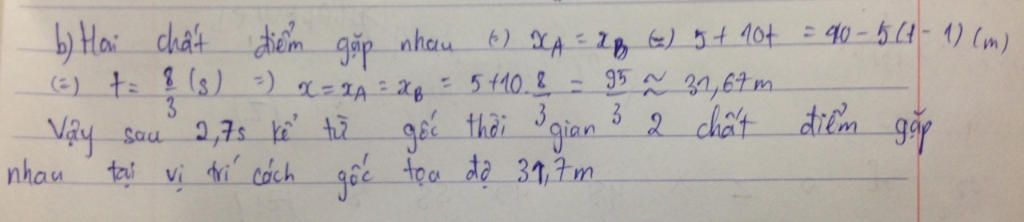 b) Hai chất điểm gặp nhau (=) xA = xB (=) 5 + 10t = 40 - 5(t - 1) (m)
(=) t = 8/3 (s) =) x = xA = xB = 5 + 10. 8/3 = 95/3 ≈ 31,67m
Vậy sau 2,7s kể từ gốc thời gian 2 chất điểm gặp
nhau tại vị trí cách gốc tọa độ 31,7m